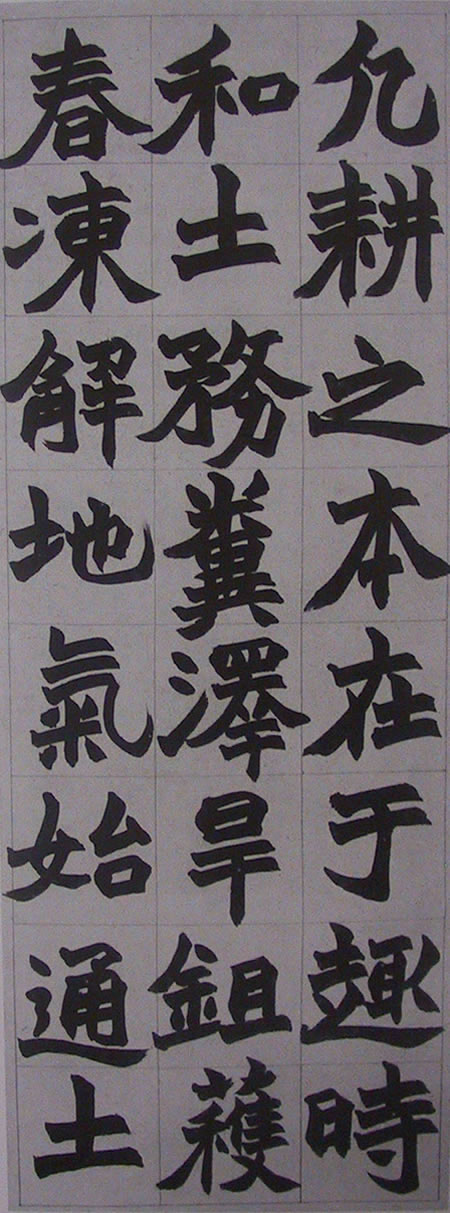 凡耕之本在于趣時
和土務糞澤旱鉏穫
春凍解地氣始通土